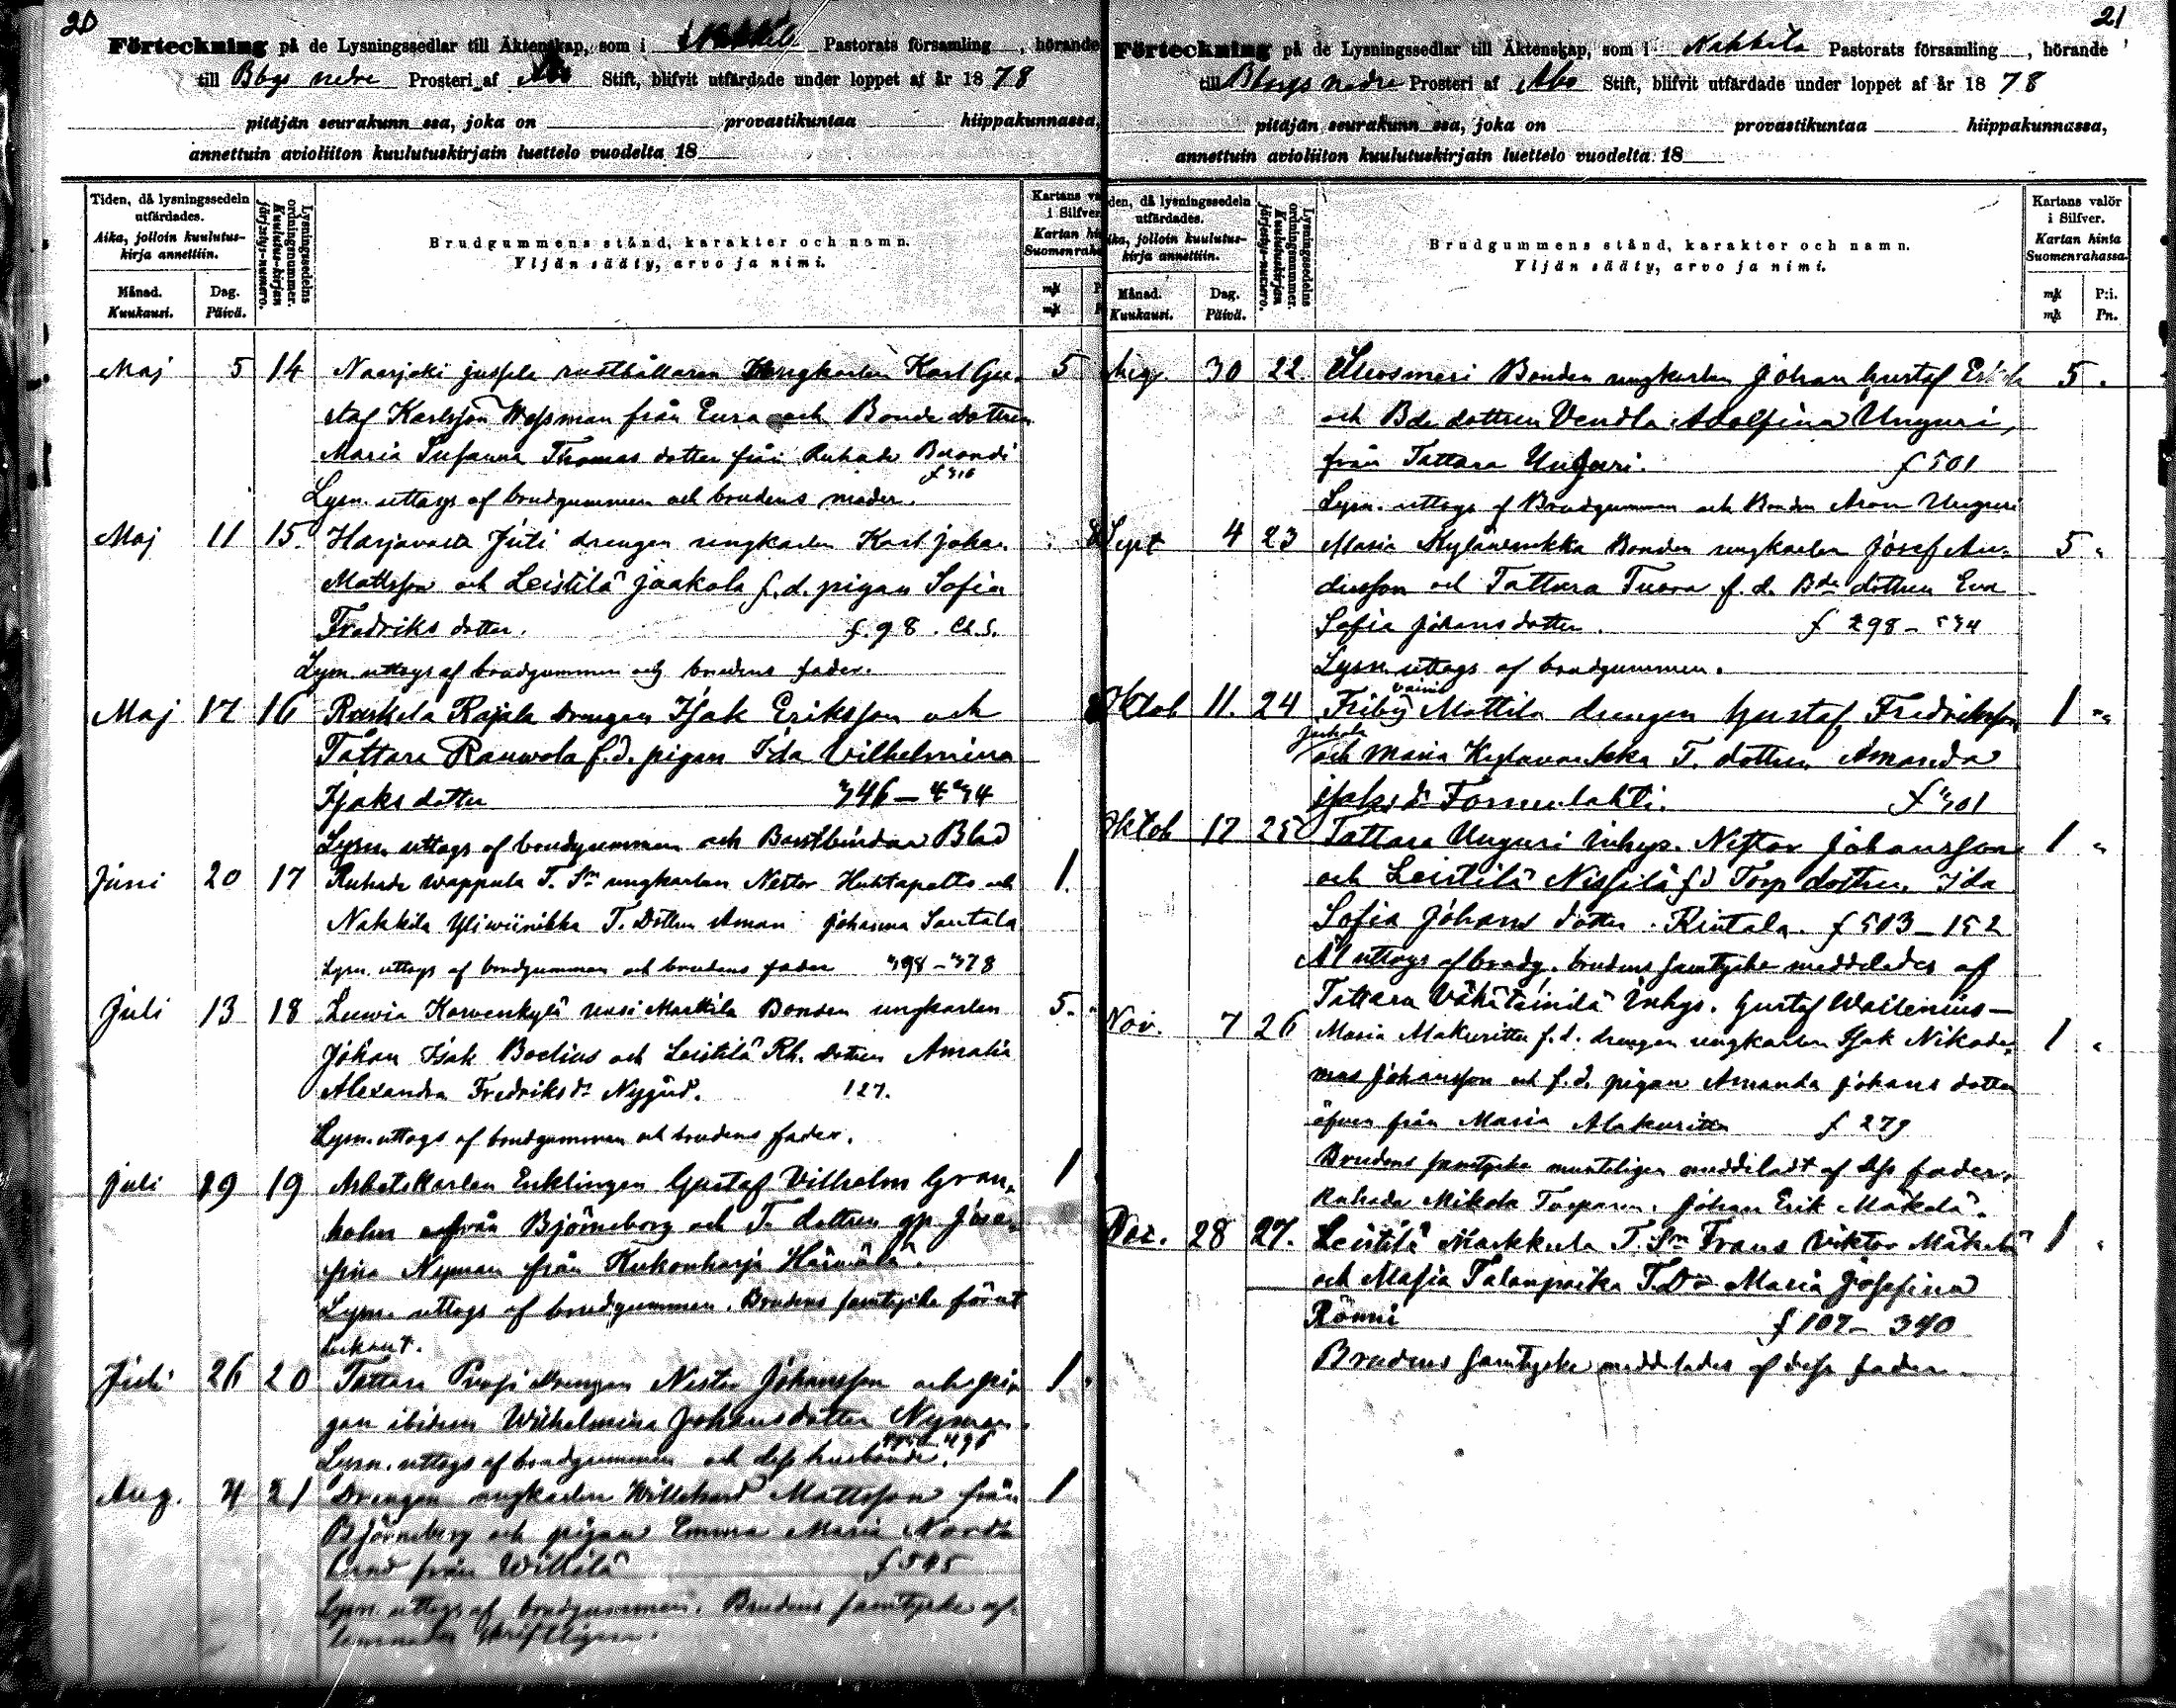 20
Förteckning på de Lysningssedlar till Äktenskap, som i Nakkila Pastorats församling, hörande
till Bbgs nedre Prosteri af Åbo Stift, blifvit utfärdade under loppet af år 1878
pitäjän seurakunn ssa, joka on provastikuntaa hiippakunnassa,
annettuin avioliiton kuulutuskirjain luettelo vuodelta 18
Tiden, då lysningssedeln
utfärdades.
Aika, jolloin kuulutus-
kirja annettiin.
Månad.
Kuukausi.
Dag.
Päivä.
Lysningssedelns
ordningsnummer.
Kuulutus-kirjan
järjestys-numero.
Brudgummens stånd, karakter och namn.
Yljän sääty, arvo ja nimi.
Kartans va
i Silfver
Kartan hin
Suomenraha
mk
mk
Maj 5 14 Naarjoki Jussila rusthållaren ungkarlen Karl Gu- 5
staf Karlsson Wessman från Eura och Bonde dottren
Maria Susanna Thomas dotter från Ruhade
Lysn. uttogs af brudgummen och brudens moder.
Maj 11 15. Harjavalta Juti drengen ungkarlen Karl Johan
Mattsson och Leistilä Jaakola f.d. pigan Sofia
Fredriks dotter. f. 98.
Lysn. uttogs af brudgummen och brudens fader.
Maj 17 16 Rajala drengen Isak Eriksson och
Tattara Rauwola f.d. pigan Ida Vilhelmina
Isaks dotter
Lysn. uttogs af brudgummen och Blad
Juni 20 17 Ruhade wappula T. Sn ungkarlen Nestor Huhtapelto och 1.
Nakkila Yliwiinikka T. Dottren Johanna Santala
Lysn. uttogs af brudgummen och brudens fader
Juli 13 18 Luvia Korvenkylä uusi Markkila Bonden ungkarlen 5.
Johan Isak Boelius och Leistilä Rh. dottren Amalia
Alexandra Fredriks dr 127.
Lysn. uttogs af brudgummen och brudens fader.
Juli 19 19 Arbetskarlen Enklingen Gustaf Vilhelm Gran- 1
holm från Björneborg och T. dottren Jose-
fina Nyman från Kukonharja Härmälä.
Lysn. uttogs af brudgummen. Brudens samtycke förut
bekant.
Juli 26 20 Tattara drengen Nestor Johansson och pi- 1
gan ibidem Wilhelmina Johansdotter Nyman
Lysn. uttogs af brudgummen och dess husbonde.
Aug. 4 21 Drengen ungkarlen Willehard Mattsson från 1
Björneborg och pigan Emma Maria Nord-
lund från Willilä f 545
Lysn. uttogs af brudgummen. Brudens samtycke af-
lemnades skriftligen.
21
Förteckning på de Lysningssedlar till Äktenskap, som i Nakkila Pastorats församling, hörande
till Bbrgs nedre Prosteri af Åbo Stift, blifvit utfärdade under loppet af år 1878
pitäjän seurakunn ssa, joka on provastikuntaa hiippakunnassa,
annettuin avioliiton kuulutuskirjain luettelo vuodelta 18
den, då lysningssedeln
utfärdades.
ika, jolloin kuulutus-
kirja annettiin.
Månad.
Kuukausi.
Dag.
Päivä.
Lysningssedelns
ordningsnummer.
Kuulutuskirjan
järjestys-numero.
Brudgummens stånd, karakter och namn.
Yljän sääty, arvo ja nimi.
Kartans valör
i Silfver.
Kartan hinta
Suomenrahassa.
mk P:i.
mk Pn.
Aug. 30 22. Bonden ungkarlen Johan Gustaf 5 .
och Bde dottren Vendla Adolfina Unguri,
från Tattara Unguri. f 501
Lysn. uttogs af Brudgummen och Bonden Aron Unguri
Sept 4 23 Maria Kylänrukka Bonden ungkarlen Josef An- 5 "
dersson och Tattara Tuora f. d. Bde dottren Eva
Sofia Johans dotter. f 298 - 534
Lysn. uttogs af brudgummen.
Oktob 11. 24 Friby Mattila drengen Gustaf Fredriksson 1 "
och Maria T. dottren Amanda
Isaks dr Tornulahti.
Oktob 17 25 Tattara Unguri inhys. Nestor Johansson 1 "
och Leistilä Nissilä f d Torp dottren Ida
Sofia Johans dotter Rintala. f 513 - 152
uttogs af brudg. brudens samtycke meddelades af
Tattara Vähätiinilä Inhys. Gustaf Wallenius —
Nov. 7 26 Maria Makuritti f. d. drengen ungkarlen Isak Nikode- 1 "
mus Johansson och f. d. pigan Amanda Johans dotter
äfven från Maria Makuritti f 279
Brudens samtycke munteligen meddeladt af dess fader.
Ruhade Mikola Torparen Johan Erik Mäkelä.
Dec. 28 27. Leistilä Markkula T. Sn Frans Viktor Mäkelä 1 "
och Masia Talonpoika T. Dr Maria Josefina
Rönni f 107 - 340
Brudens samtycke meddelades af dess fader.